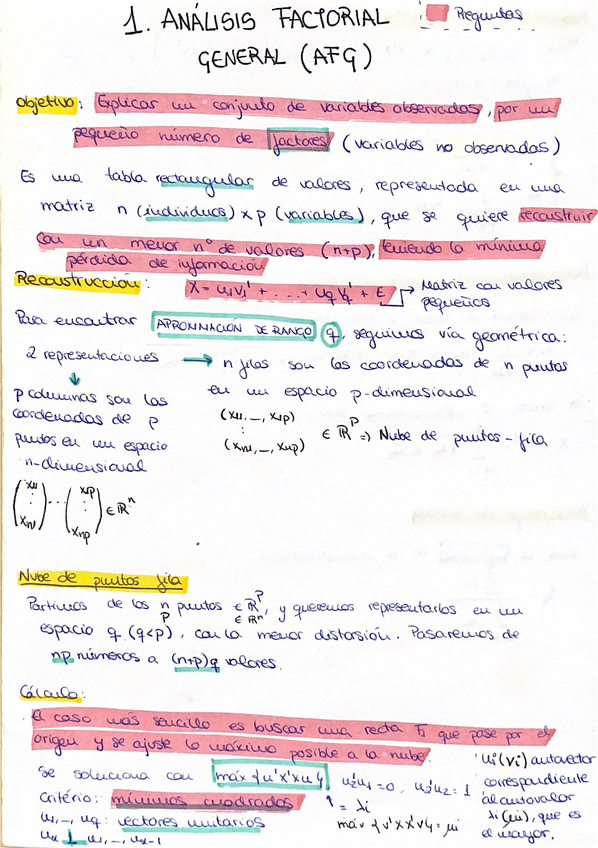 1. ANÁLISIS FACTORIAL
Preguntas
GENERAL (AFG)
Objetivo: Explicar un conjunto de variables observadas, por un
pequeño número de factores (variables no observadas)
Es una tabla rectangular de valores, representada en una
matriz n (individuos) x p (variables), que se quiere reconstruir
con un menor nº de valores (n+p), teniendo la mínima
pérdida de información
Reconstrucción: X = u₁v₁' + ... + uqvq' + E → Matriz con valores
pequeños
Para encontrar APROXIMACIÓN DE RANGO q, seguimos vía geométrica:
2 representaciones → n filas son las coordenadas de n puntos
en un espacio p-dimensional
p columnas son las
coordenadas de p
puntos en un espacio
n-dimensional
(x11, ..., x1p)
⋮
(xn1, ..., xnp)
∈ ℝᵖ => Nube de puntos-fila
(x11 ⋮ xn1) ... (x1p ⋮ xnp) ∈ ℝⁿ
Nube de puntos fila
Partimos de los n puntos ∈ ℝᵖ, y queremos representarlos en un
p ∈ ℝⁿ
espacio q (q<p), con la menor distorsión. Pasaremos de
np números a (n+p)q valores.
Cálculo:
El caso más sencillo es buscar una recta F₁ que pase por el
origen y se ajuste lo máximo posible a la nube.
Se soluciona con máx {u'x'xu}, u₂'u₁=0, u₂'u₂=1
Critério: mínimos cuadrados
↑ = λi
máx {v'xx'v} = μi
u₁, ..., uq: vectores unitarios
uα ⊥ u₁, ..., uα-1
ui (vi) autovector
correspondiente
al autovalor
λi (μi), que es
el mayor.